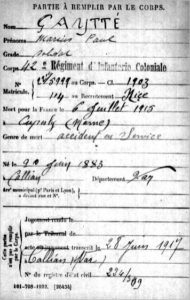 PARTIE À REMPLIR PAR LE CORPS.
Nom GAYTTÉ
Prénoms Marius Paul
Grade soldat
Corps 42e Régiment d'Infanterie Coloniale
N° au Corps. — Cl. 1903
Matricule. 114 au Recrutement Nice
Mort pour la France le 6 juillet 1915
à (Marne)
Genre de mort accident en Service
Né le Juin 1883
à Callian Département Var
Arrt municipal (pr Paris et Lyon),
à défaut rue et N°.
Jugement rendu le
par le Tribunal de
acte ou jugement transcrit le 28 Juin 1917
à Callian (Var)
N° du registre d'état civil
101-708-1922. [26434]